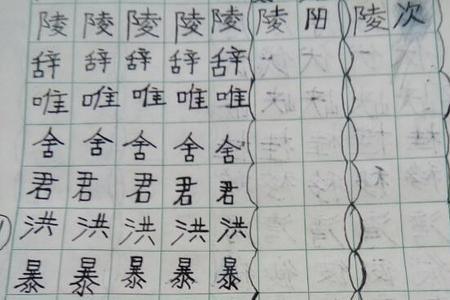 陵陵陵陵陵陵阳陵次
辞辞辞辞辞
唯唯唯唯唯
舍舍舍舍舍
君君君君君
洪洪洪洪洪
暴暴暴暴暴